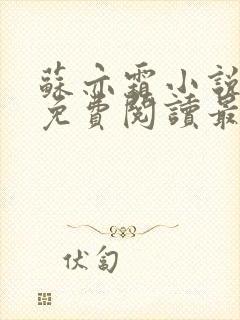 蘇亦霜小說
免費閱讀最
伏匐